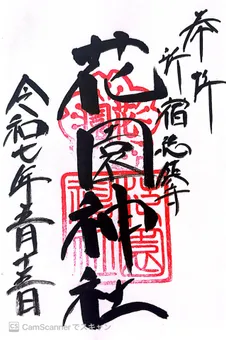 奉拝
新宿総鎮守
花園神社
令和七年
CS CamScannerでスキャン